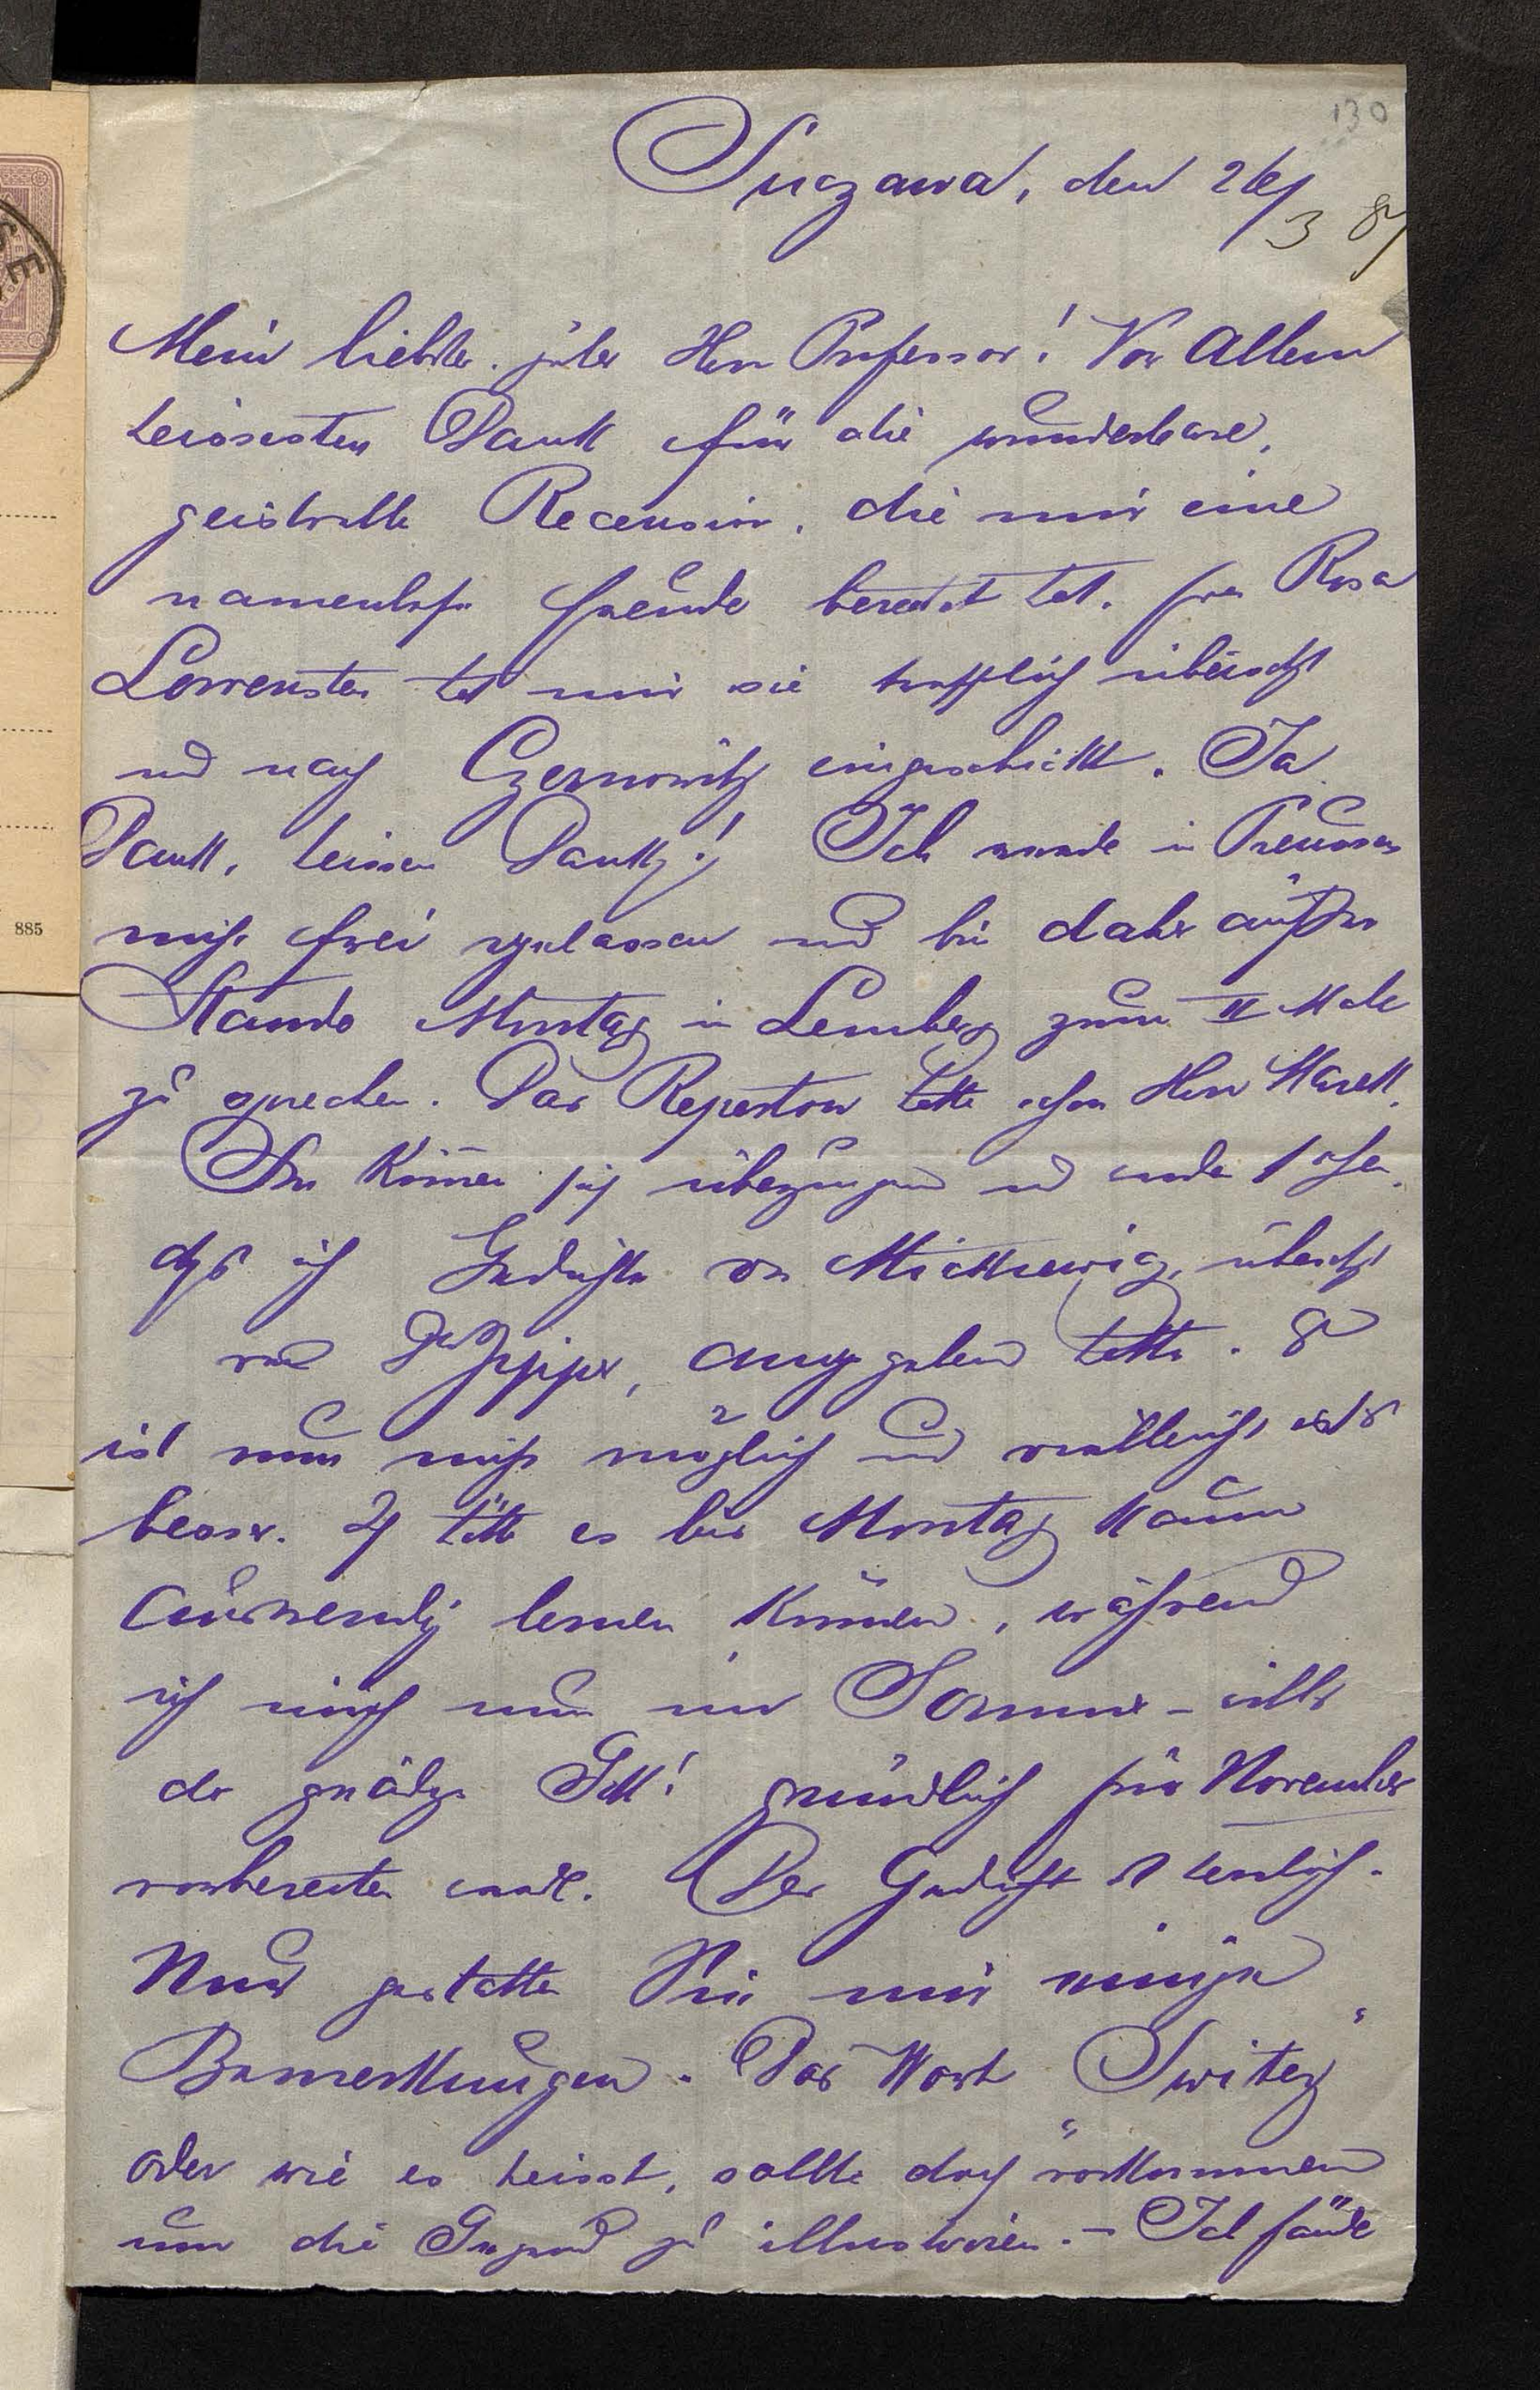 130
Suczawa, den 26/3 87
Mein liebster, guter Herr Professor! Vor Allem
heissesten Dank für die wunderbare,
geistvolle Recension, die mir eine
namenlose Freude bereitet hat. Frau Rosa
Lowenstein hat mir sie trefflich übersetzt
und nach Czernowitz eingeschickt. Ja
Dank, heissen Dank! Ich wurde in Preussen
nicht frei gelassen und bin daher außer
Stande Montag in Lemberg zum II Male
zu sprechen. Das Repertoir hatte schon Herr Marek.
Sie können sich überzeugen und werden sehen,
daß ich Gedichte von Mickiewicz, übersetzt
von Dr Lipiner, angegeben hatte. Es
ist nun nicht möglich und vielleicht ist's
besser. Ich hätte es bis Montag kaum
auswendig lernen können, während
ich mich nun im Sommer – will's
der gnädge Gott! gründlich für November
vorbereiten werde. Das Gedicht ist herrlich.
Nur gestatten Sie mir einige
Bemerkungen. Das Wort "Switez"
oder wie es heisst, sollte doch vorkommen
um die Gegend zu illustriren. – Ich fände
885
SE